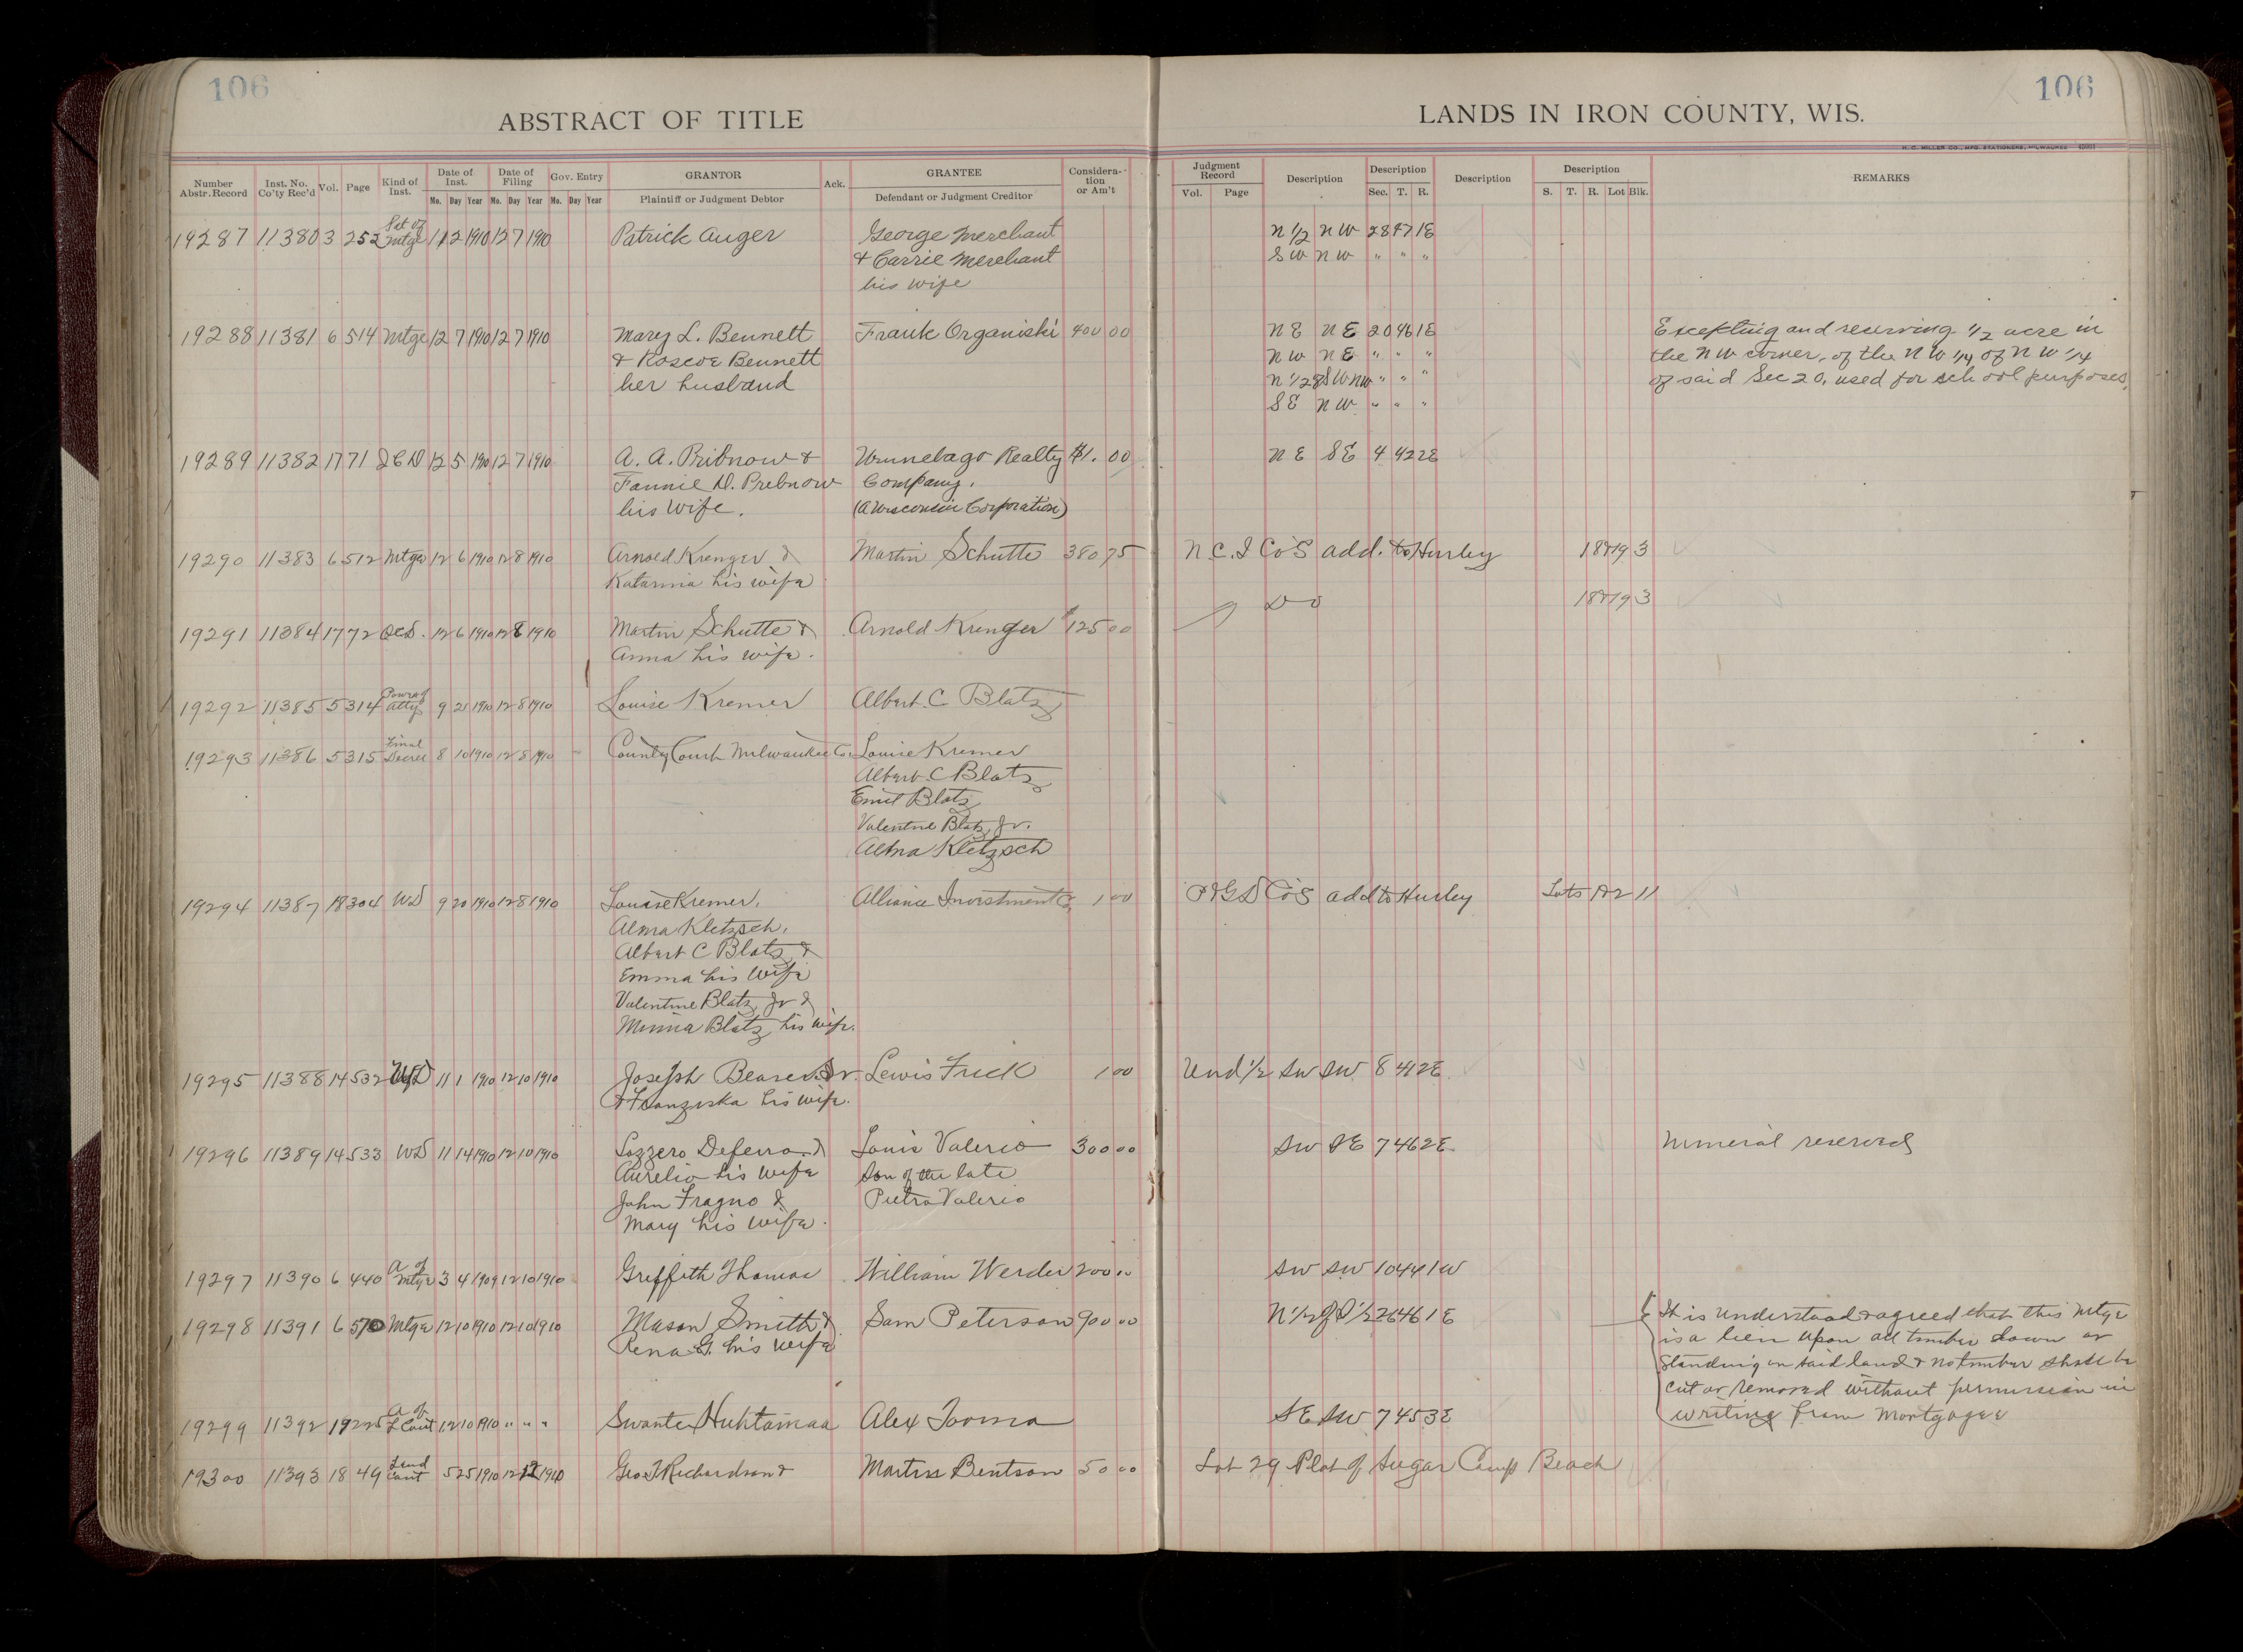 106
106
ABSTRACT OF TITLE
LANDS IN IRON COUNTY, WIS.
H. C. MILLER CO., MFG. STATIONERS, MILWAUKEE
Number Abstr. Record Inst. No. Co'ty Rec'd Vol. Page Kind of Inst. Date of Inst. Mo. Day Year Date of Filing Mo. Day Year Gov. Entry Mo. Day Year GRANTOR Plaintiff or Judgment Debtor Ack. GRANTEE Defendant or Judgment Creditor Considera-tion or Am't
Judgment Record Vol. Page Description Description Sec. T. R. Description Description S. T. R. Lot Blk. REMARKS
19287 11380 3 252 Sat of Mtge 11 2 1910 12 7 1910 Patrick Auger George Merchant N 1/2 NW 28 47 1E
& Carrie Merchant SW NW " " "
his wife
19288 11381 6 514 Mtge 12 7 1910 12 7 1910 Mary L. Bennett Frank Organiski 400 00 NE NE 20 46 1E Excepting and reserving 1/2 acre in
& Roscoe Bennett NW NE " " " the NW corner, of the NW 1/4 of NW 1/4
her husband N 1/2 & SW NW " " " of said Sec 20, used for school purposes.
SE NW " " "
19289 11382 17 71 QCD 12 5 1910 12 7 1910 A. A. Pribnow & Winnebago Realty $1.00 NE SE 4 42 2E
Fannie D. Prebnow Company,
his wife. (A Wisconsin Corporation)
19290 11383 6 512 Mtge 12 6 1910 12 8 1910 Arnold Krenger & Martin Schutte 380 75 N.C.I Co's add. to Hurley 18&19 3
Katarina his wife
Do 18&19 3
19291 11384 17 72 QCD. 12 6 1910 12 8 1910 Martin Schutte & Arnold Krenger $125 00
Anna his wife.
19292 11385 5 314 Power of Atty 9 21 1910 12 8 1910 Louise Kremer Albert C Blatz
19293 11386 5 315 Final Decree 8 10 1910 12 8 1910 County Court Milwaukee Co. Louise Kremer
Albert C Blatz
Emil Blatz
Valentine Blatz, Jr.
Alma Kletzsch
19294 11387 18 304 WD 9 20 1910 12 8 1910 Louise Kremer, Alliance Investment Co, 1 00 P&GD Co's add to Hurley Lots 1&2 11
Alma Kletzsch,
Albert C Blatz &
Emma his wife
Valentine Blatz, Jr &
Minna Blatz his wife.
19295 11388 14 532 WD 11 1 1910 12 10 1910 Joseph Sr. Lewis Frick 1 00 Und 1/2 SW SW 8 41 2E
& Franziska his wife.
19296 11389 14 533 WD 11 14 1910 12 10 1910 Lozzero Deferro & Louis Valerio 300 00 SW SE 7 46 2E Mineral reserved
Aurelia his wife son of the late
John Fragno & Pietro Valerio
Mary his wife.
19297 11390 6 440 A of Mtge 3 4 1909 12 10 1910 Griffith Thomas William Werder 200 00 SW SW 10 44 1W
19298 11391 6 570 Mtge 12 10 1910 12 10 1910 Mason Smith & Sam Peterson 900 00 N 1/2 of S 1/2 26 46 1E It is understood & agreed that this Mtge
Rena G. his wife is a lien upon all timber down or
standing on said land & no timber shall be
cut or removed without permission in
19299 11392 19 225 A of L Cont 12 10 1910 " " " Swante Huhtamaa Alex Tooma SE SW 7 45 3E writing from Mortgagee
19300 11393 18 49 Land Cont 5 25 1910 12 12 1910 Geo T Richardson & Martin Bentson 50 00 Lot 29 Plat of Sugar Camp Beach